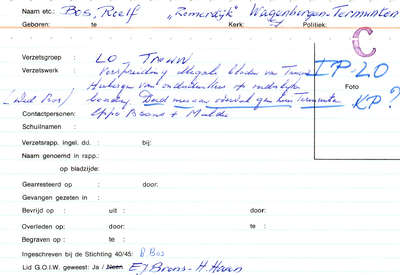 Naam etc.: Bos, Roelf "Zomerdijk" Wagenbergen-Termunten
Geboren: te Kerk: Politiek:
C
Verzetsgroep : LO - Trouw
Verzetswerk : Verspreiding illegale bladen va Trouw
IP-LO
Herbergen van onderduikers op ondslijk
(Wed Bos) Deed mee aan
Foto
KP?
Contactpersonen: Boons + Mulder
Schuilnamen :
Verzetsrapp. ingel. dd. : bij:
Naam genoemd in rapp.:
op bladzijde:
Gearresteerd op : door:
Gevangen gezeten in :
Bevrijd op : uit : door:
Overleden op: door: te :
Begraven op : te :
Ingeschreven bij de Stichting 40/45: B. Bos
Lid G.O.I.W. geweest: Ja / Neen E.J. Brons - H. Haan